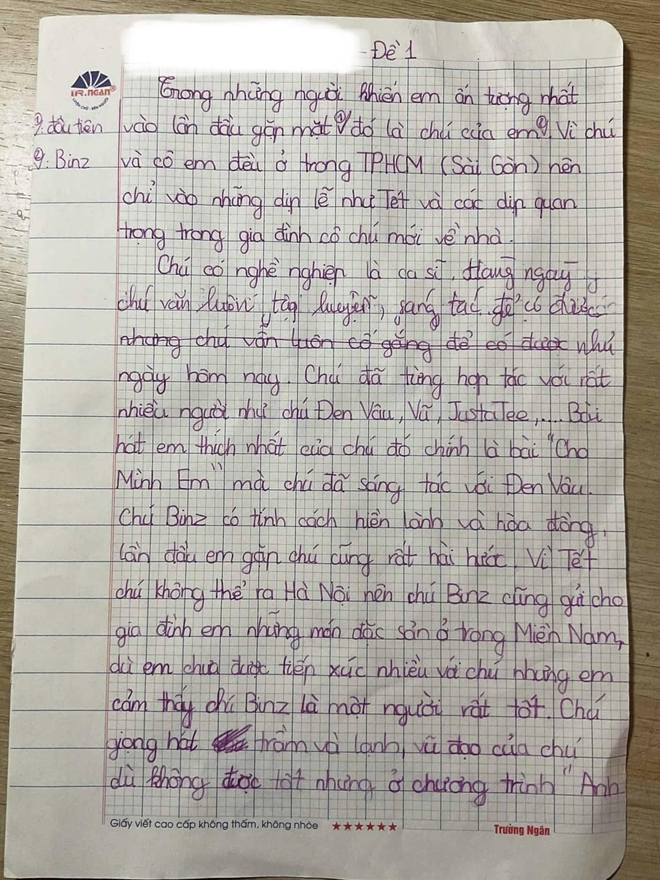 - Đề 1
TR.NGAN
Trong những người khiến em ấn tượng nhất
① đầu tiên vào lần đầu gặp mặt ① đó là chú của em ②. Vì chú
② Binz và cô em đều ở trong TPHCM (Sài Gòn) nên
chỉ vào những dịp lễ như Tết và các dịp quan
trọng trong gia đình cô chú mới về nhà.
Chú có nghề nghiệp là ca sĩ. Hang ngay
chú vẫn luôn tập luyện, sang tác để có được
nhưng chú vẫn luôn cố gắng để có được như
ngày hôm nay. Chú đã từng hợp tác với rất
nhiều người như chú Đen Vâu, Vũ, JustaTee,.... Bài
hát em thích nhất của chú đó chính là bài "Cho
Mình Em" mà chú đã sáng tác với Đen Vâu.
Chú Binz có tính cách hiền lành và hòa đồng,
lần đầu em gặp chú cũng rất hài hước. Vì Tết
chú không thể ra Hà Nội nên chú Binz cũng gửi cho
gia đình em những món đặc sản ở trong Miền Nam,
dù em chưa được tiếp xúc nhiều với chú nhưng em
cảm thấy chú Binz là một người rất tốt. Chú
giọng hát trầm và lạnh, vũ đạo của chú
dù không được tốt nhưng ở chương trình "Anh
Giấy viết cao cấp không thấm, không nhòe ★★★★★★ Trường Ngân